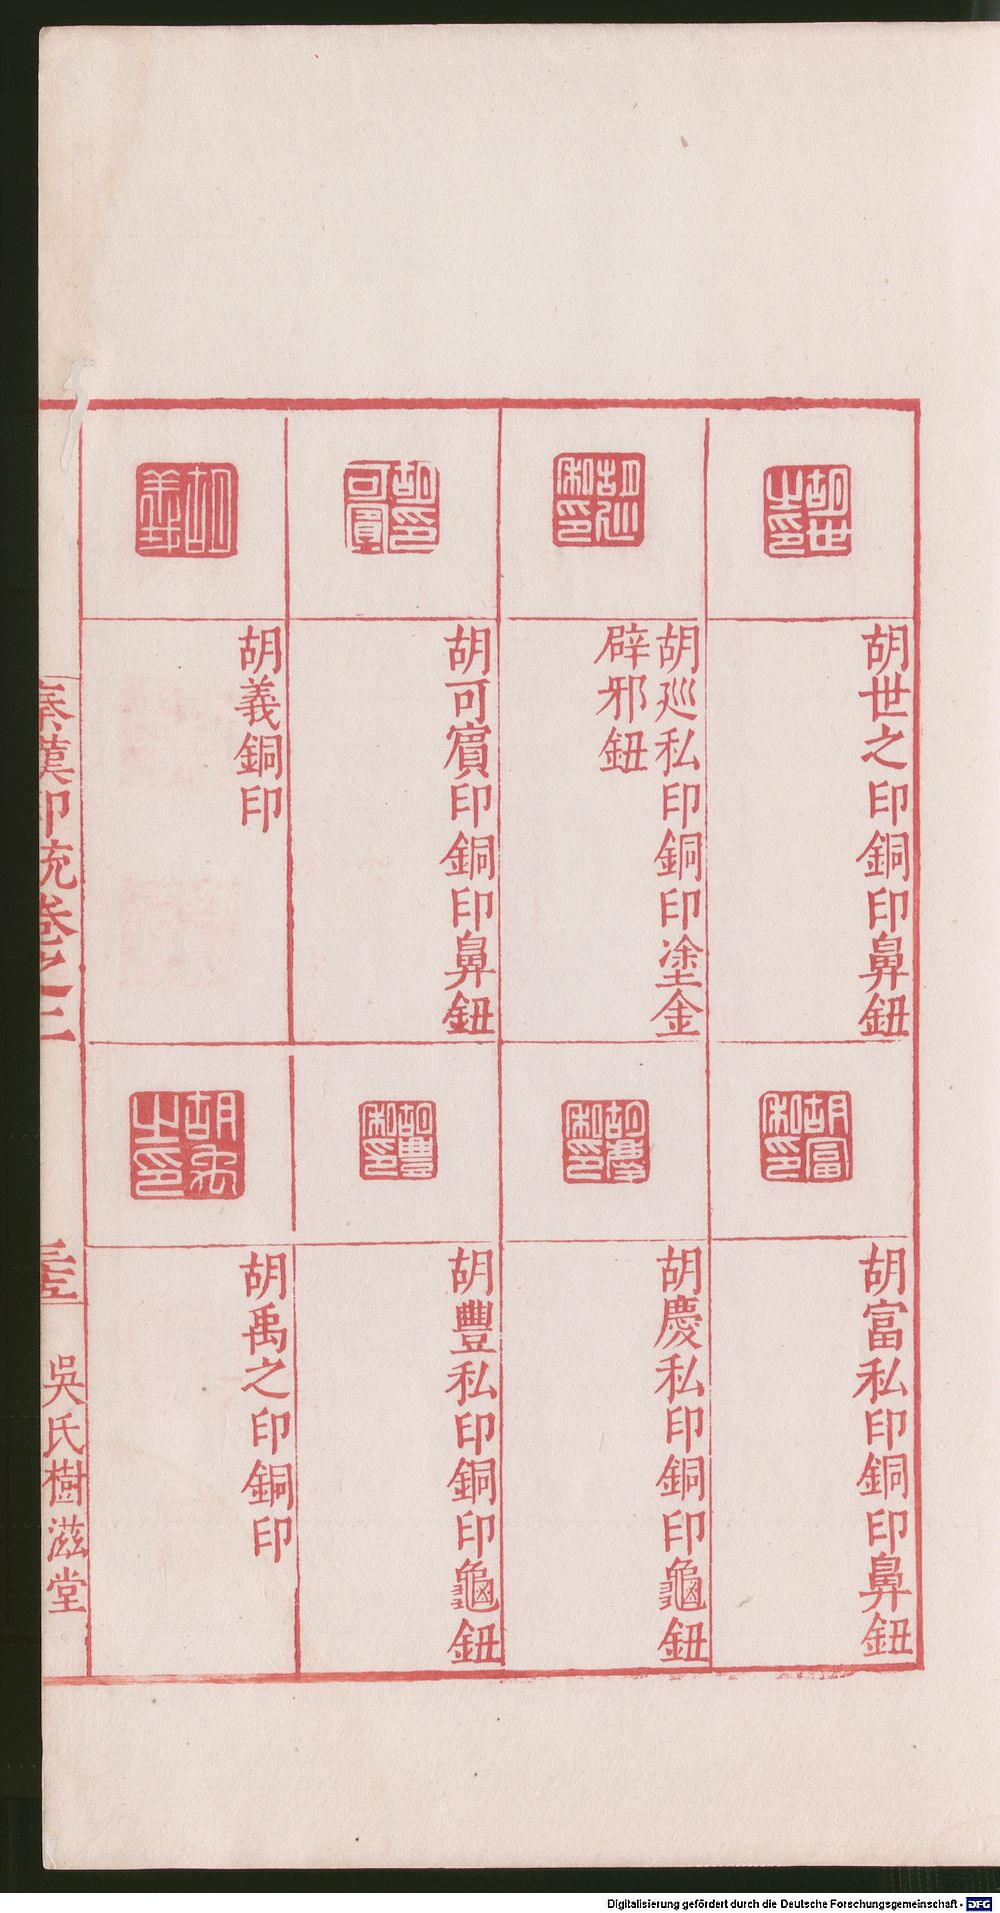 胡世之印
胡世之印銅印鼻鈕
胡巡私印
胡廵私印銅印塗金
辟邪鈕
胡可賔印
胡可賔印銅印鼻鈕
胡義
胡義銅印
胡富私印
胡富私印銅印鼻鈕
胡慶私印
胡慶私印銅印龜鈕
胡豐私印
胡豐私印銅印龜鈕
胡禹之印
胡禹之印銅印
秦漢印統卷之二
吳氏樹滋堂
Digitalisierung gefördert durch die Deutsche Forschungsgemeinschaft - DFG